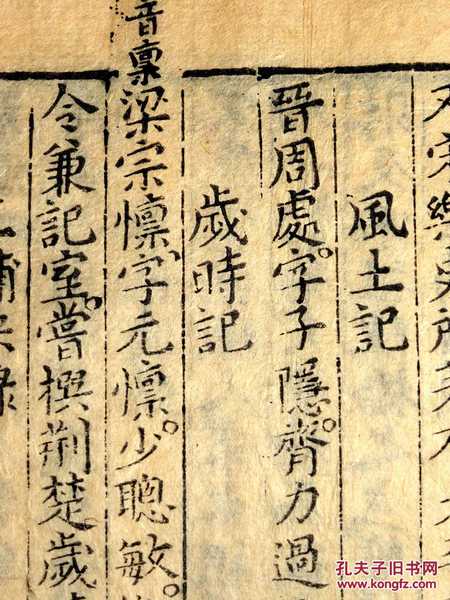 風土記
晉周處。字子隱。膂力過
歲時記
音稟
梁宗懍、字元懍。少聰敏。
令兼記室。嘗撰荊楚。歲
孔夫子旧书网
www.kongfz.com